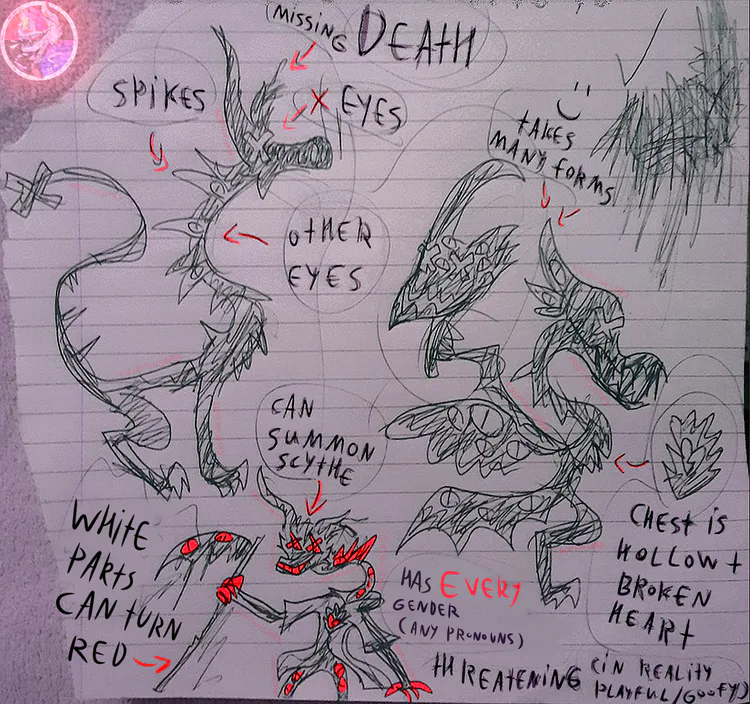 MISSING
DEATH
SPIKES
X EYES
TAKES
MANY FORMS
OTHER
EYES
CAN
SUMMON
SCYTHE
WHITE
PARTS
CAN TURN
RED
HAS EVERY
GENDER
(ANY PRONOUNS)
CHEST IS
HOLLOW +
BROKEN
HEART
THREATENING (IN REALITY
PLAYFUL/GOOFY)